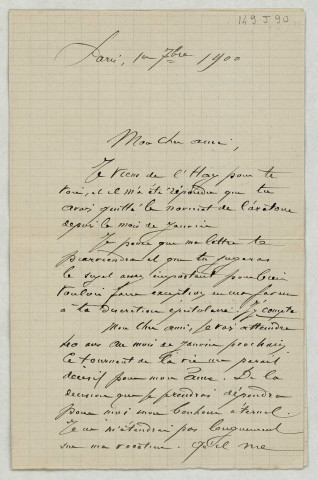 149 J 90
Paris, 1er 7bre 1900
Mon cher ami,
Je viens de l'Hay pour te
voir, et il m'a été répondu que tu
avais quitté le noviciat de l'oratoire
depuis le mois de janvier
Je pense que ma lettre te
parviendra et que tu jugeras
le sujet assez important pour bien
vouloir faire exception en ma faveur
à ta discrétion épistolaire. J'y compte
Mon cher ami, je vais atteindre
40 ans au mois de janvier prochain
Ce tournant de la vie me paraît
décisif pour mon âme. De la
décision que je prendrai dépendra
pour moi mon bonheur éternel.
Je ne m'étendrai pas longuement
sur ma vocation. Qu'il me